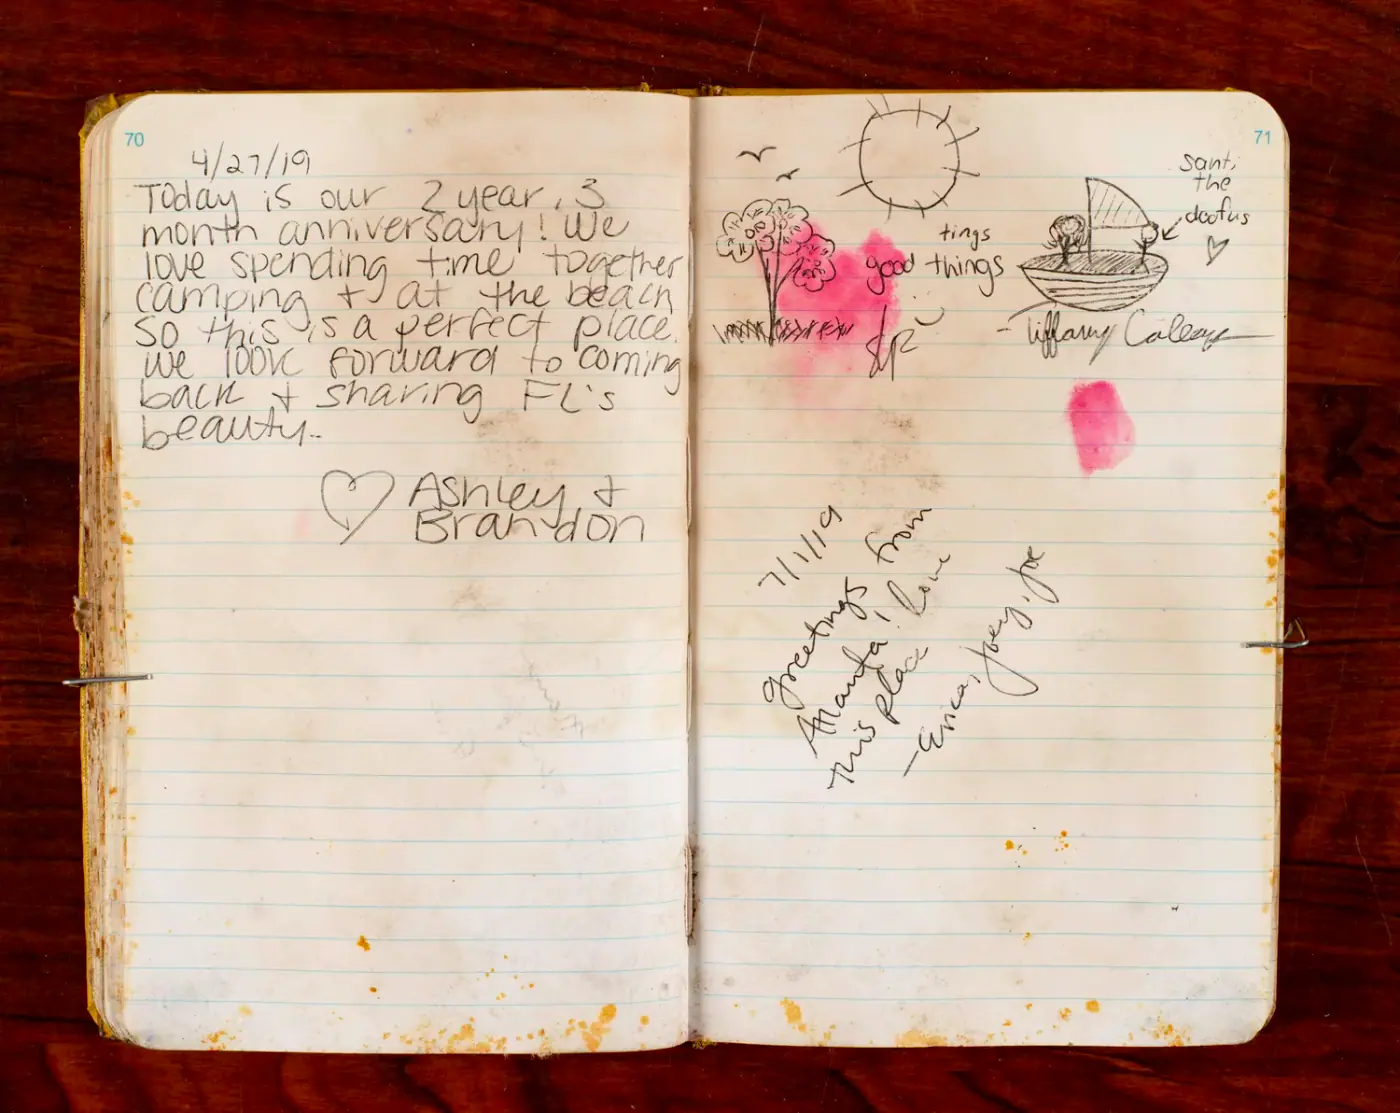 70
4/27/19
Today is our 2 year, 3
month anniversary! We
love spending time together
camping + at the beach
so this is a perfect place.
we look forward to coming
back + sharing FL's
beauty..
Ashley +
Brandon
71
santi
the
doofus
tings
good things
- Tiffany
7/1/19
Greetings from
Atlanta! Love
this place
- Erica, Joey, Joe